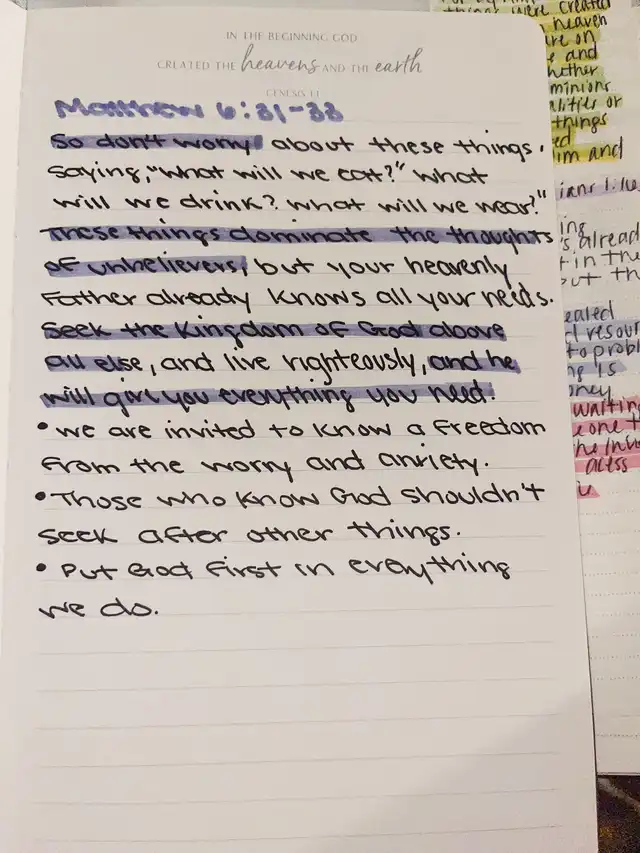 IN THE BEGINNING GOD
CREATED THE heavens AND THE earth
GENESIS 1:1
Matthew 6:31-33
So don't worry about these things,
saying, "what will we eat?" what
will we drink? what will we wear?"
These things dominate the thoughts
of unbelievers, but your heavenly
Father already knows all your needs.
Seek the Kingdom of God above
all else, and live righteously, and he
will give you everything you need.
• we are invited to know a freedom
from the worry and anxiety.
• Those who know God shouldn't
seek after other things.
• Put God first in everything
we do.
things were created
heaven
are on
and
whether
things
im and
already
t in the
but th
to probl
is
money
waiting